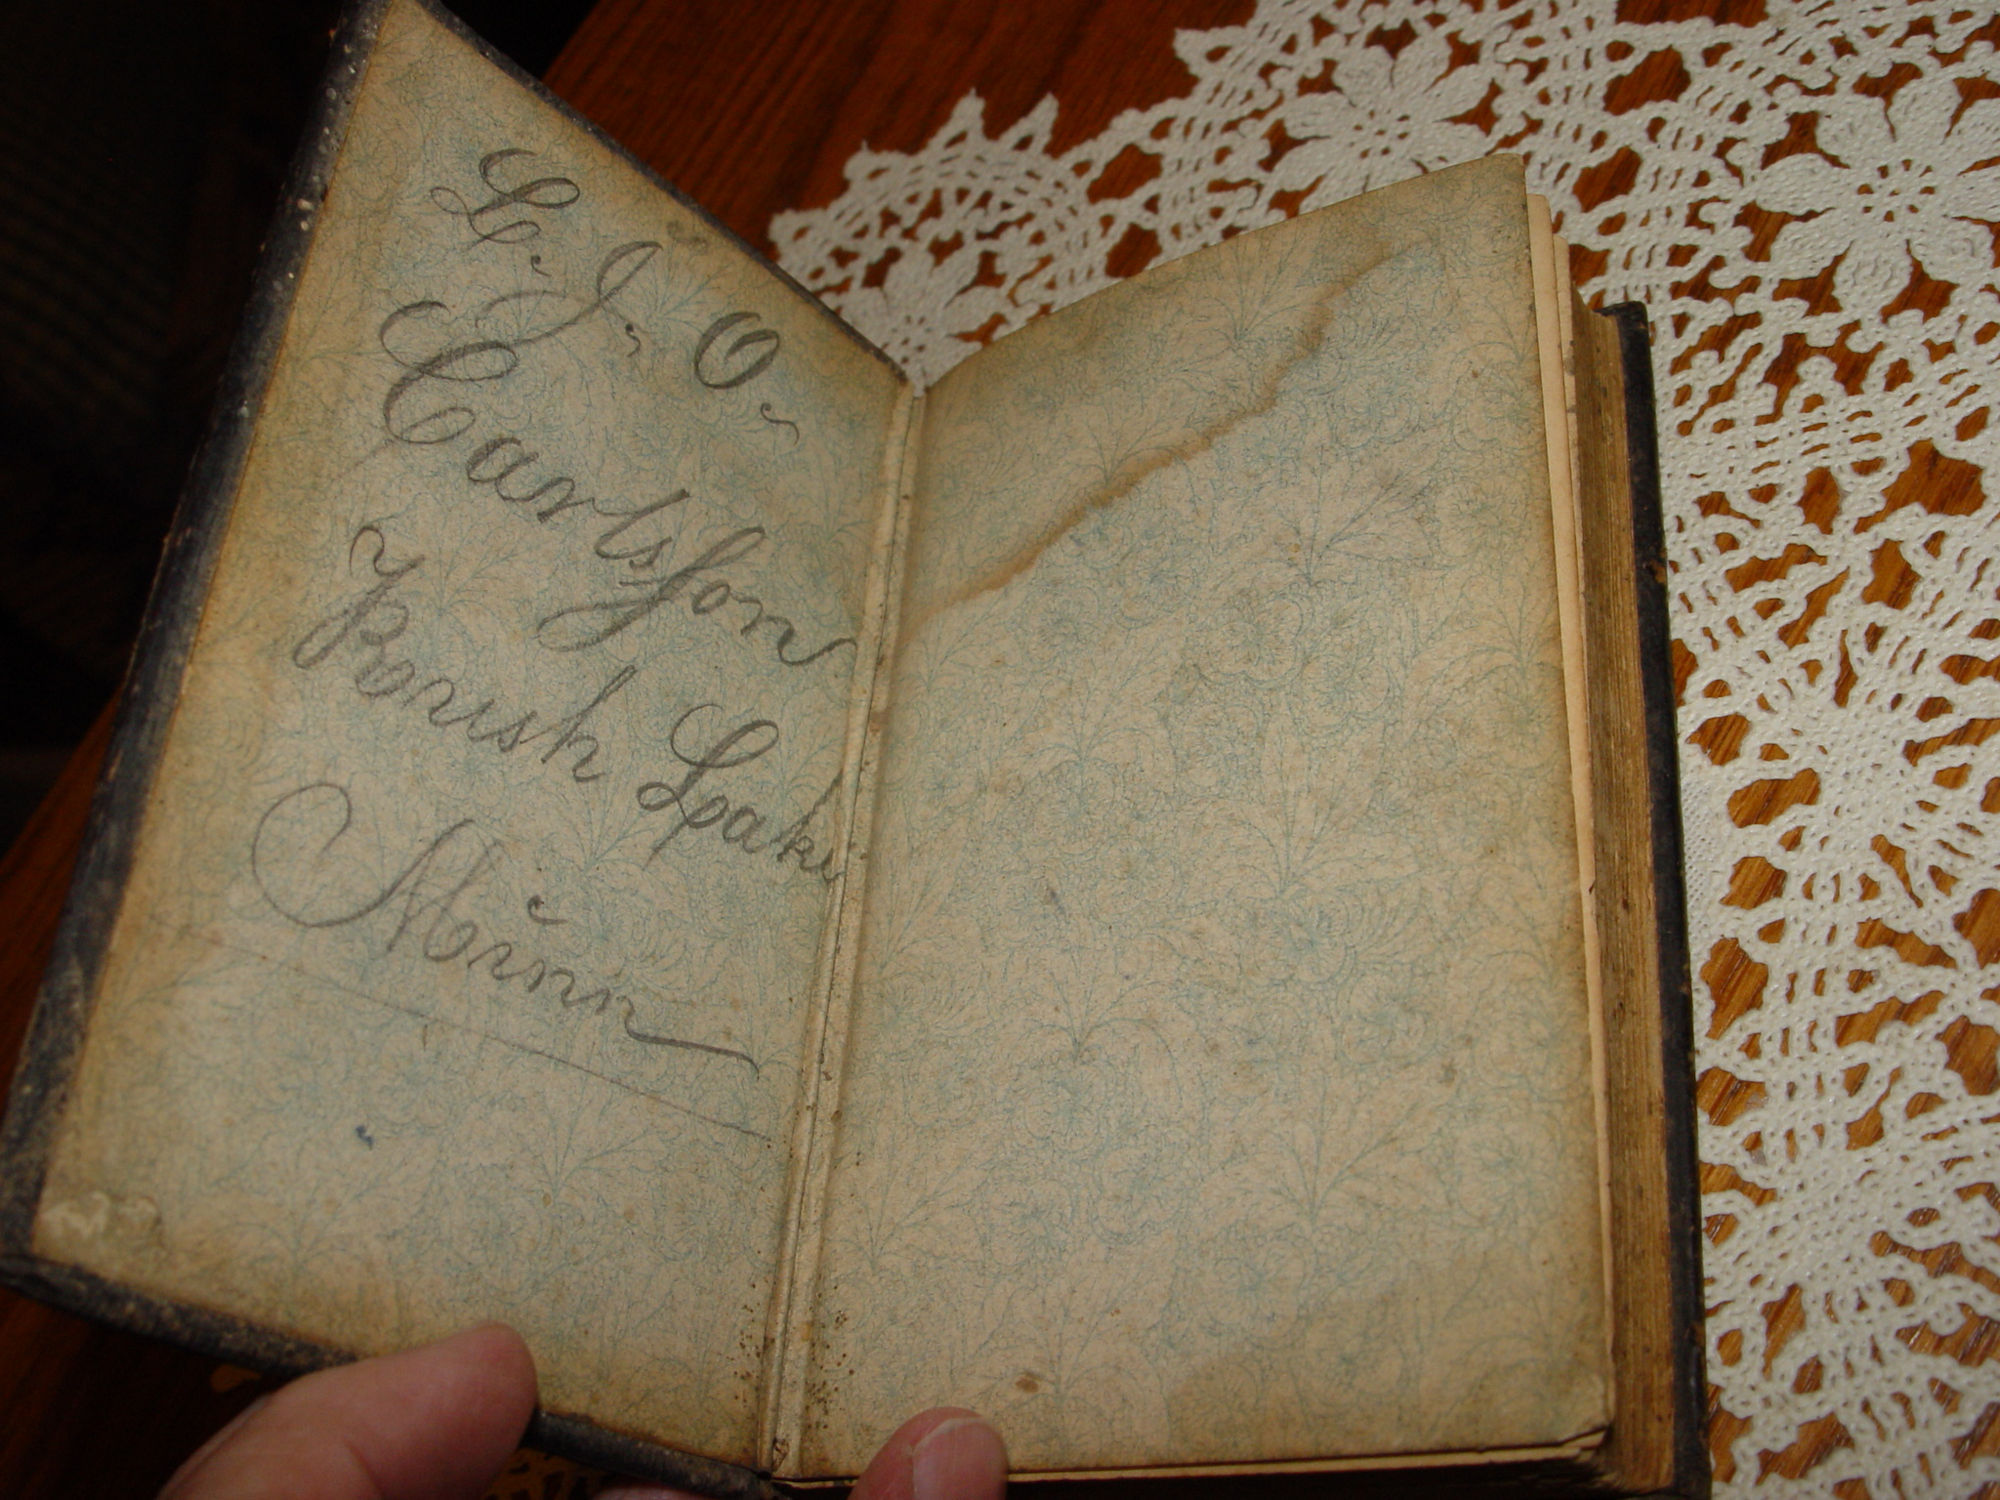 L. J. O.
Carlsson
Parish Lake
Minn